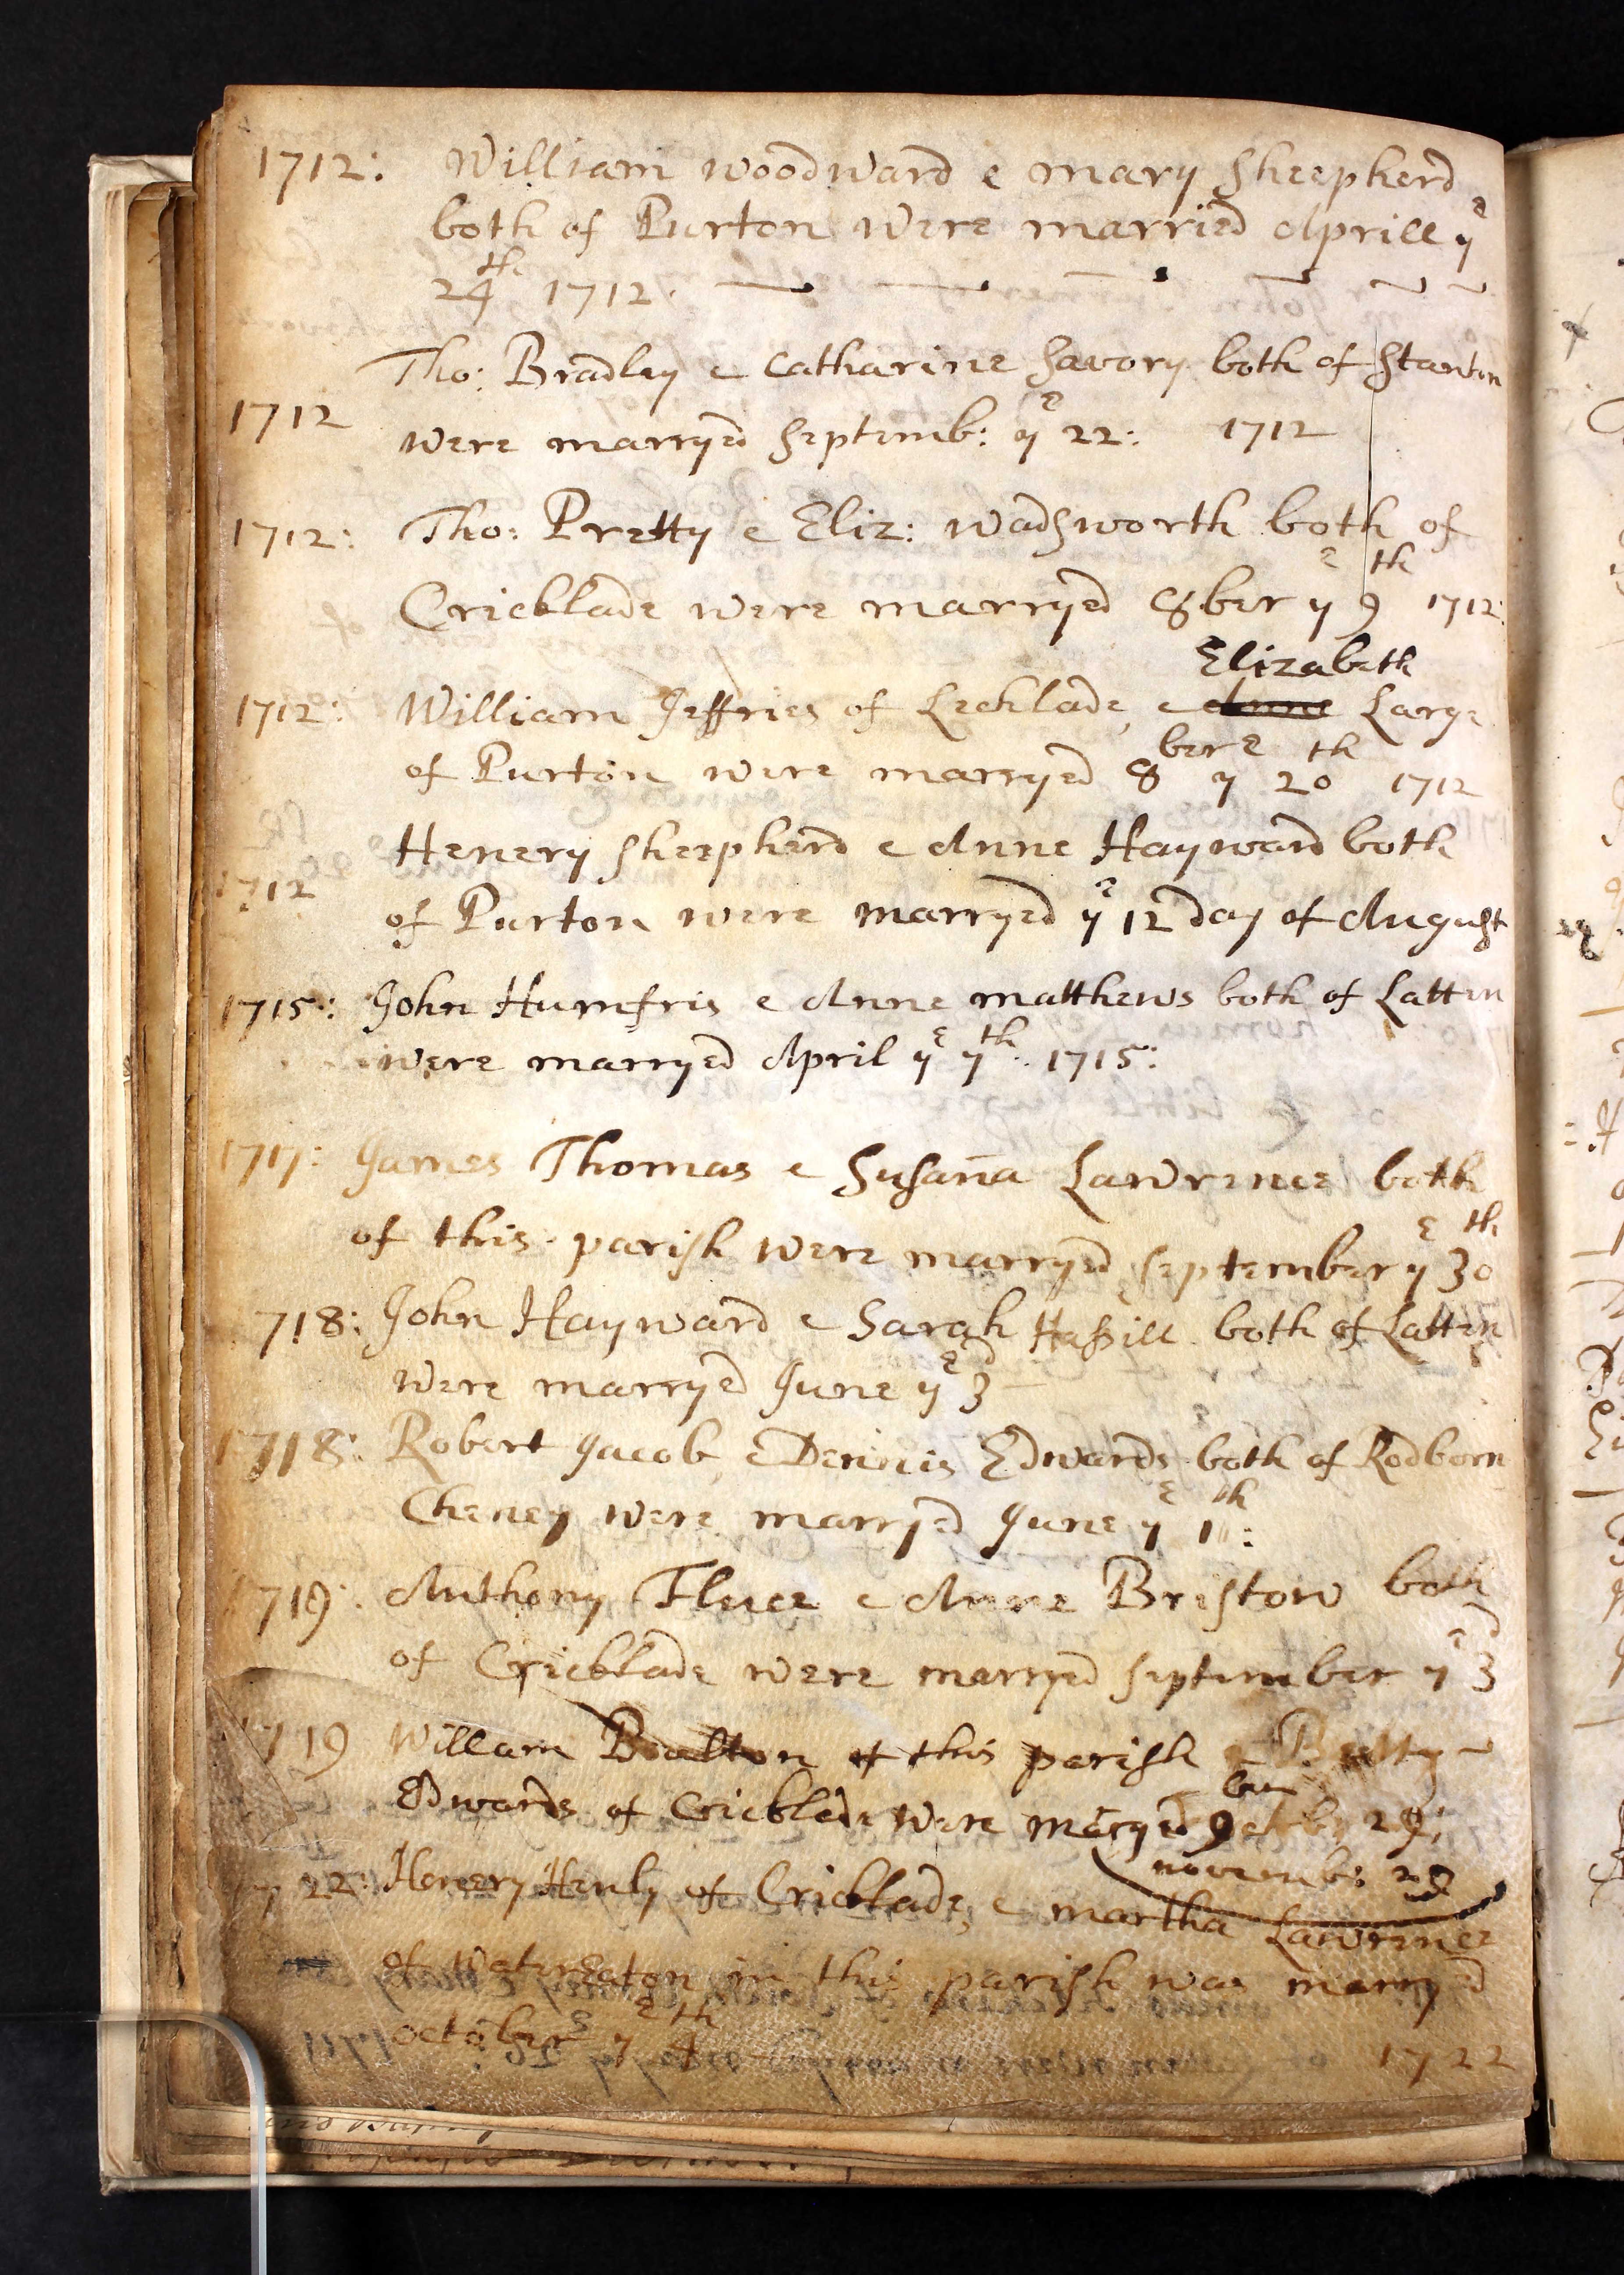 1712: William woodward & mary Sheepherd
both of Purton were married Aprill yͤ
24th 1712.
Tho: Bradley & Catharine Savory both of Stanton
1712 were marryed Septemb: yͤ 22: 1712
1712: Tho: Pretty & Eliz: wadsworth both of
Cricklade were marryed 8ber yͤ 9th 1712:
Elizabeth
1712: William Jeffries of Lecklade, & Anne Large
of Purton were marryed 8ber yͤ 20th 1712
Henery Sheepherd & Anne Hayward both
1712 of Purton were marryed yͤ 12 day of August
1715: John Humfris & Anne matthews both of Latten
were marryed April yͤ 7th. 1715:
1717: James Thomas & Susan̄a Lawrence both
of this parish were marryed September yͤ 30th
1718: John Hayward & Sarah Haßill both of Latten
were marryed June yͤ 3d
1718: Robert Jacob, & Dennis Edwards both of Rodborn
Cheney were marryed June yͤ
1719: Anthony Fluce & Anne Bristow both
of Cricklade were marryed September yͤ 3d
1719 Willam Boulton of this parish & Betty
Edwards of Cricklade were maryed 9ber 29:
novemb: 29
1722: Henery Henly of Cricklade, & martha Lawrence
of WaterEaton in this parish was marryed
october yͤ 4th 1722